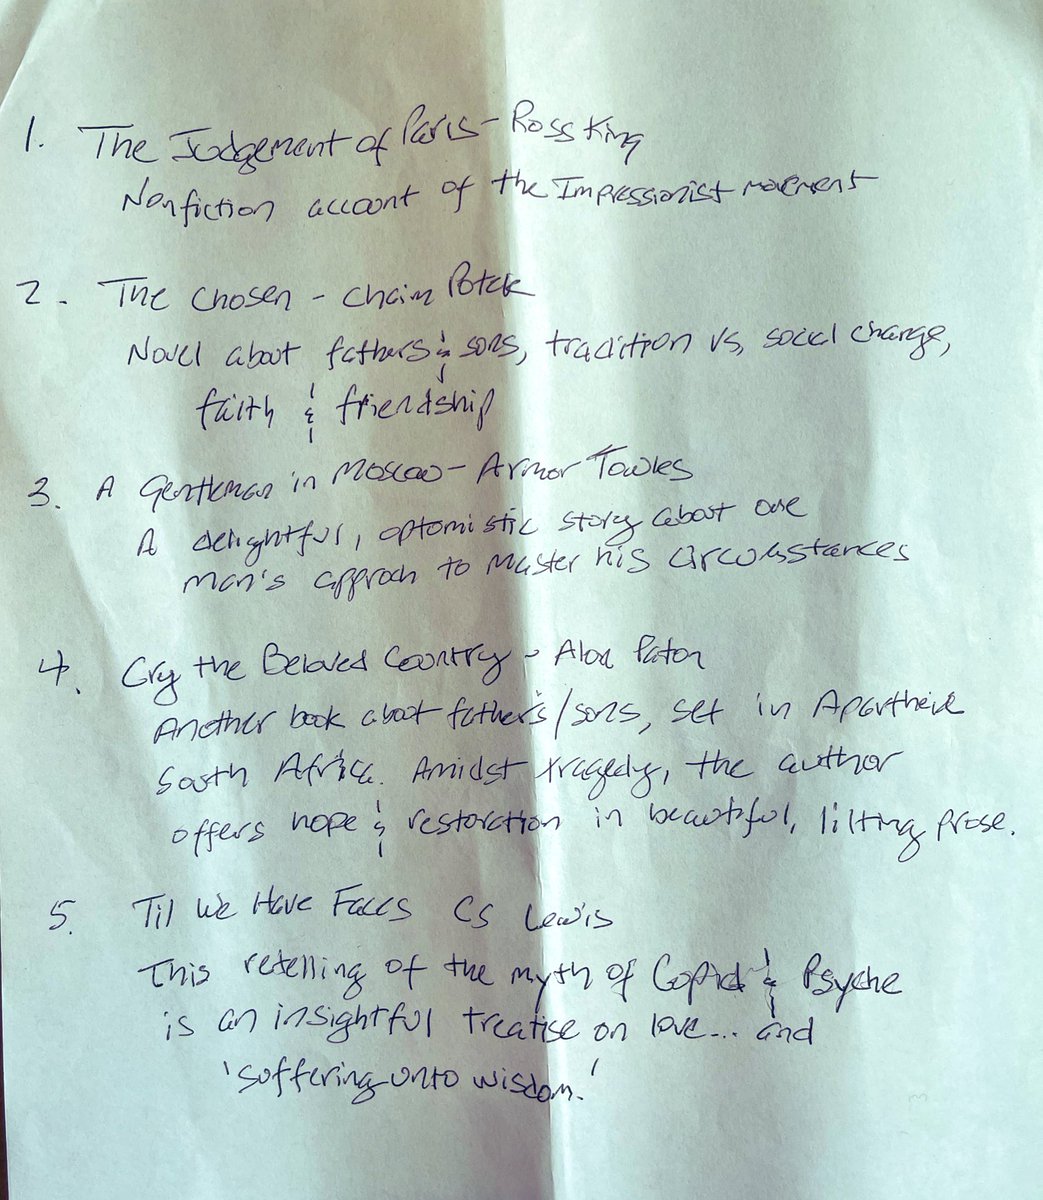 1. The Judgement of Paris - Ross King
Nonfiction account of the Impressionist movement
2. The Chosen - Chaim Potok
Novel about fathers & sons, tradition vs, social change,
faith & friendship
3. A Gentleman in Moscow - Armor Towles
A delightful, optomistic story about one
man's approch to master his circumstances
4. Cry the Beloved Country - Alan Paton
Another book about father's/sons, set in Apartheid
South Africa. Amidst tragedy, the author
offers hope & restoration in beautiful, lilting prose.
5. Til We Have Faces CS Lewis
This retelling of the myth of Cupid & Psyche
is an insightful treatise on love... and
'suffering unto wisdom.'